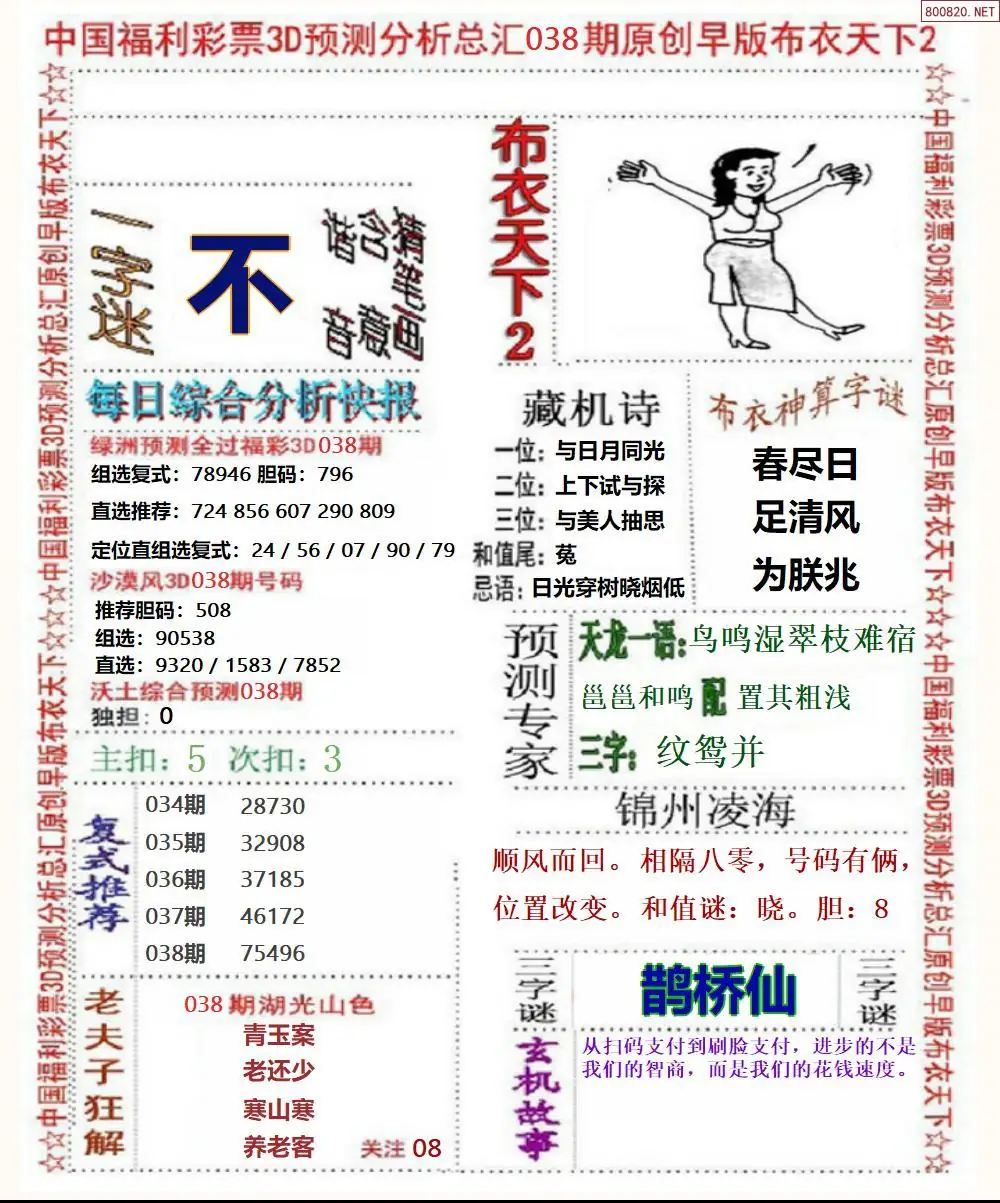 800820.NET
中国福利彩票3D预测分析总汇038期原创早版布衣天下2
☆☆中国福利彩票3D预测分析总汇原创早版布衣天下☆☆☆☆中国福利彩票3D预测分析总汇原创早版布衣天下☆☆
一字迷
不
猜笔画
含意
谐音
布衣天下2
每日综合分析快报
绿洲预测全过福彩3D038期
组选复式：78946 胆码：796
直选推荐：724 856 607 290 809
定位直组选复式：24 / 56 / 07 / 90 / 79
沙漠风3D038期号码
推荐胆码：508
组选：90538
直选：9320 / 1583 / 7852
沃土综合预测038期
独担：0
主扣：5 次扣：3
复式推荐
034期 28730
035期 32908
036期 37185
037期 46172
038期 75496
老夫子狂解
038期湖光山色
青玉案
老还少
寒山寒
养老客 关注 08
藏机诗
一位：与日月同光
二位：上下试与探
三位：与美人抽思
和值尾：菟
忌语：日光穿树晓烟低
布衣神算字谜
春尽日
足清风
为朕兆
预测专家
天龙一语：鸟鸣湿翠枝难宿
邕邕和鸣 配 置其粗浅
三字：纹鸳并
锦州凌海
顺风而回。相隔八零，号码有俩，
位置改变。和值谜：晓。胆：8
三字谜
鹊桥仙
三字谜
玄机故事
从扫码支付到刷脸支付，进步的不是
我们的智商，而是我们的花钱速度。
☆☆中国福利彩票3D预测分析总汇原创早版布衣天下☆☆☆☆中国福利彩票3D预测分析总汇原创早版布衣天下☆☆